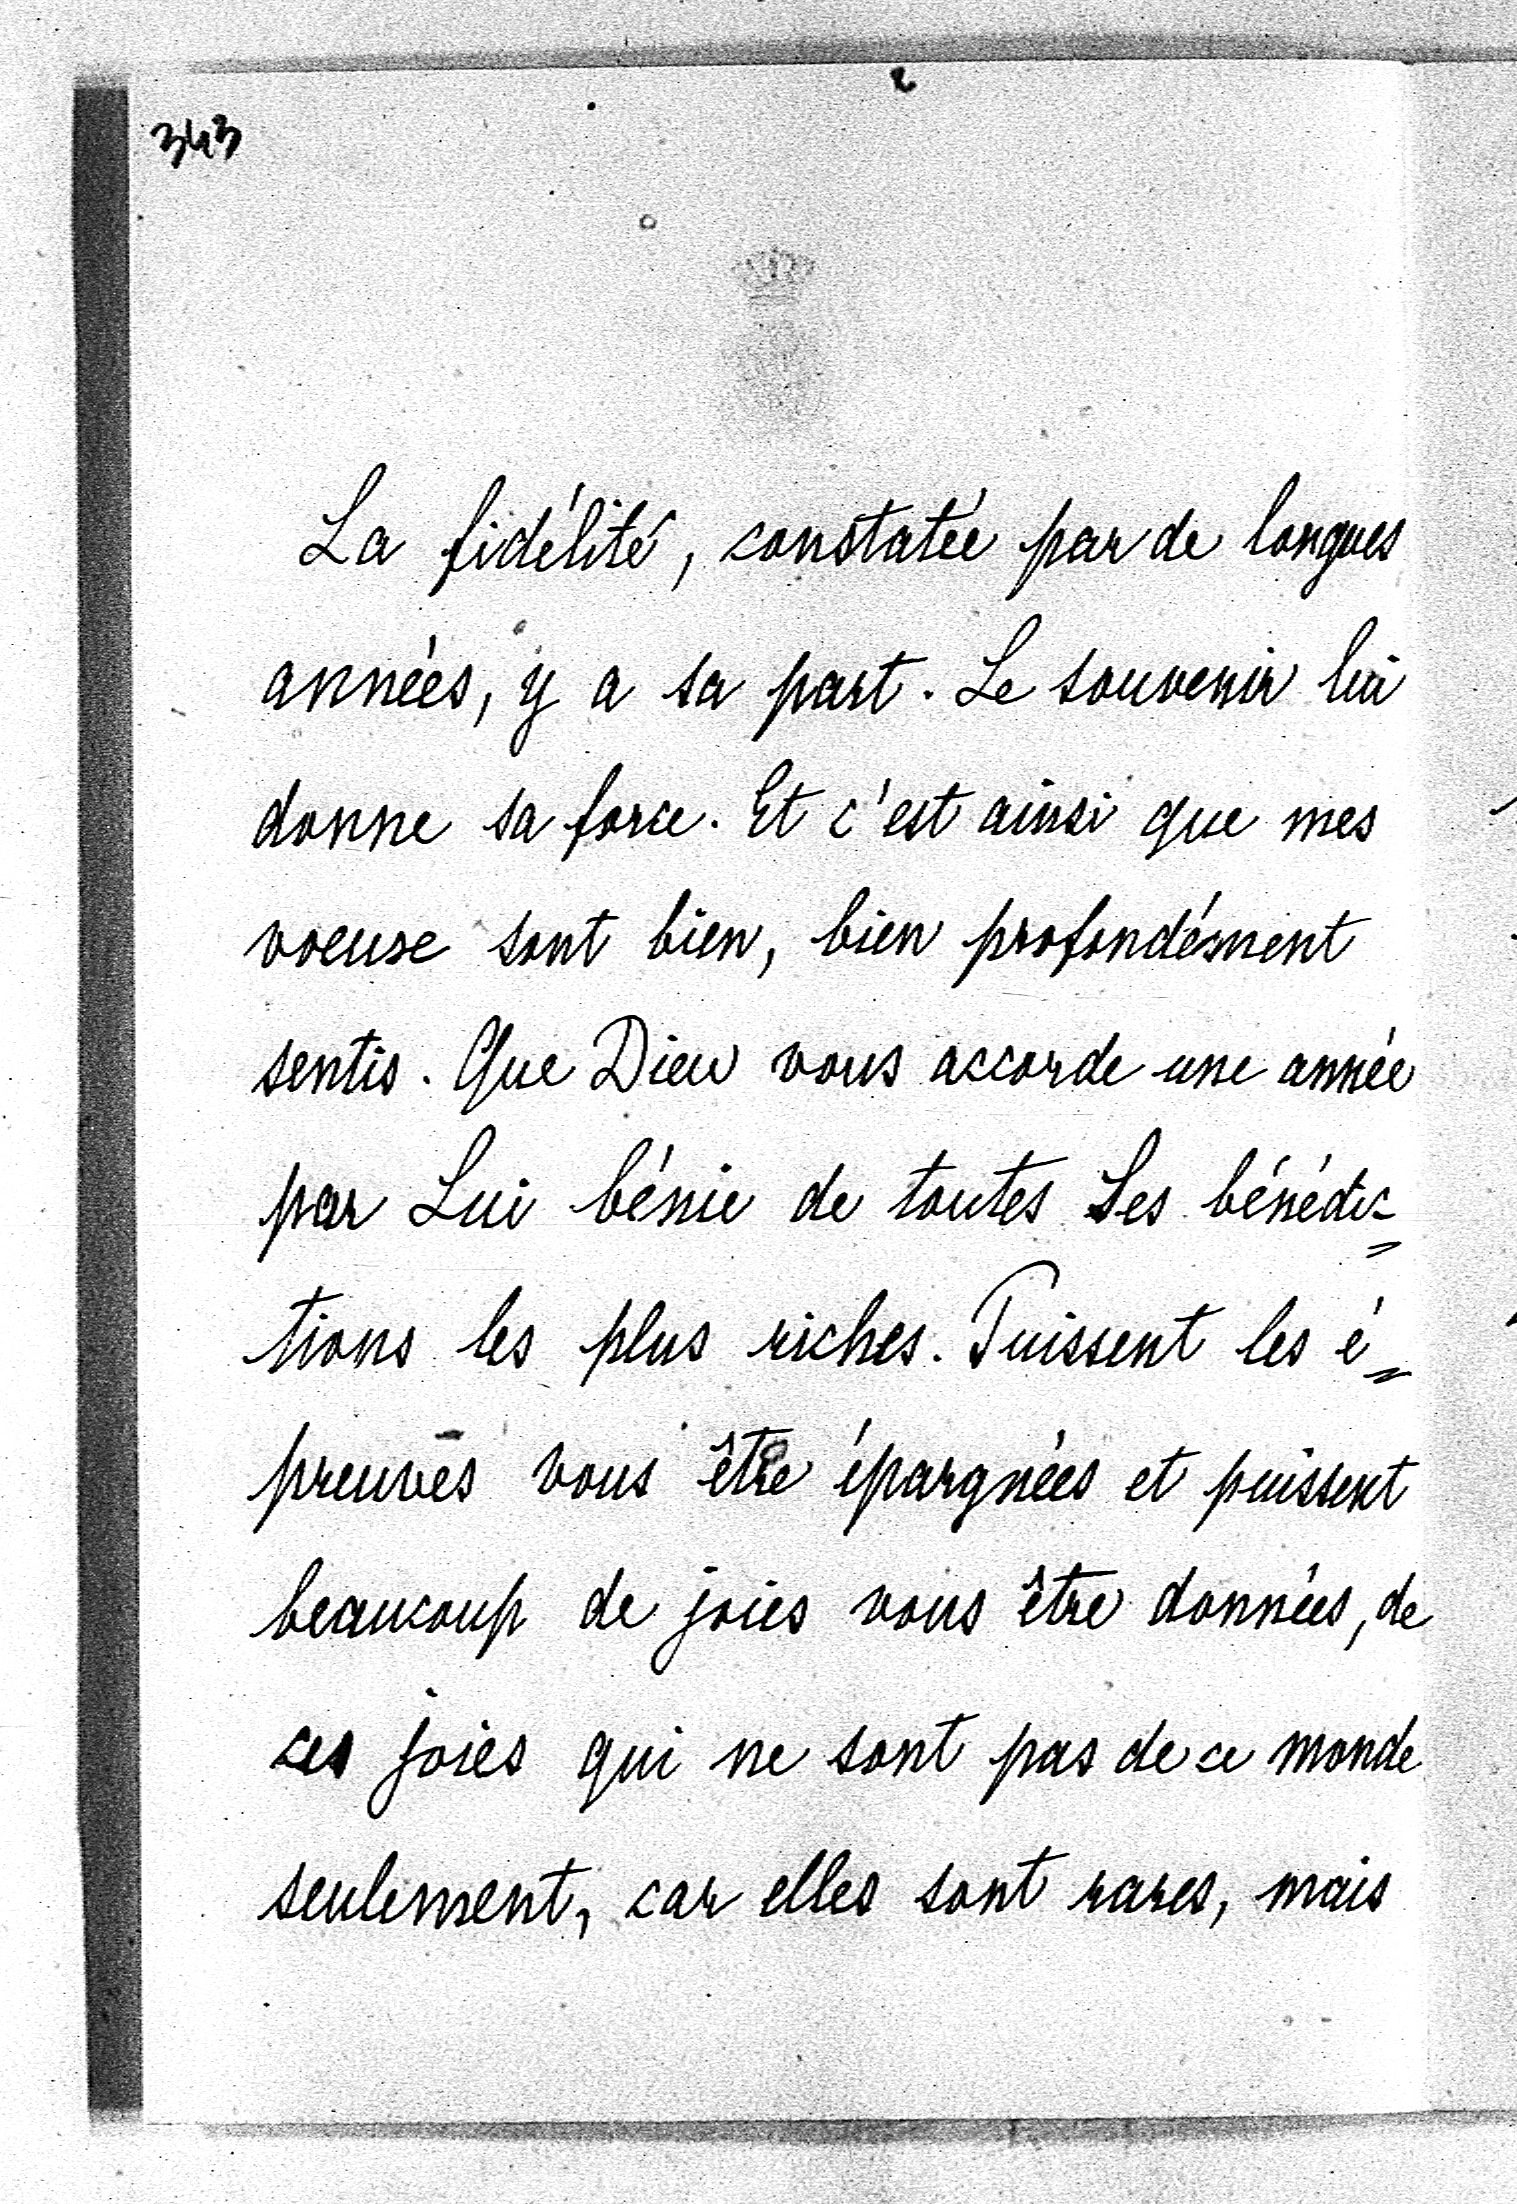 343
La fidélité, constatée par de longues
années, y a sa part. Le souvenir lui
donne sa force. Et c'est ainsi que mes
voeux sont bien, bien profondément
sentis. Que Dieu vous accorde une année
par Lui bénie de toutes Ses bénédic=
tions les plus riches. Puissent les é=
preuves vous être épargnées et puissent
beaucoup de joies vous être données, de
ces joies qui ne sont pas de ce monde
seulement, car elles sont rares, mais